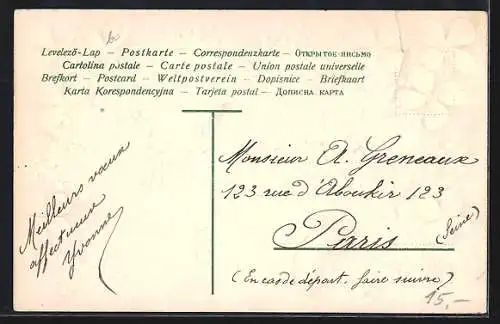 b
Levelező-Lap – Postkarte – Correspondenzkarte – Открытое письмо
Cartolina postale – Carte postale – Union postale universelle
Brefkort – Postcard – Weltpostverein – Dopisnice – Briefkaart
Karta Korespondencyjna – Tarjeta postal – Дописна карта
Meilleurs vœux
affectueux
Yvonne
Monsieur A. Greneaux
123 rue d'Aboukir 123
Paris
(Seine)
(En cas de départ. faire suivre)
15,–